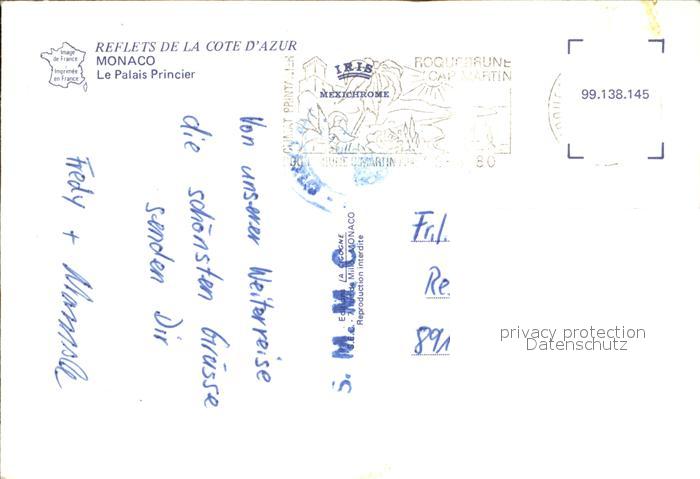 Image
de France
Imprimée
en France
REFLETS DE LA COTE D'AZUR
MONACO
Le Palais Princier
IRIS
MEXICHROME
ROQUEBRUNE
CAP MARTIN
80
99.138.145
Von unserer Weiterreise
die schönsten Grüsse
senden Dir
Fredy +
LA CIGOGNE
MONACO
Reproduction interdite
Frl.
Re
891
privacy protection
Datenschutz